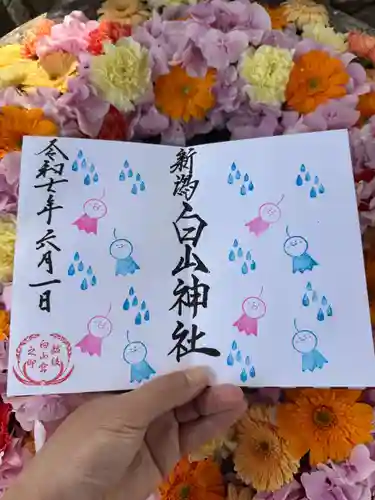 新潟白山神社
令和七年六月一日
白山宮